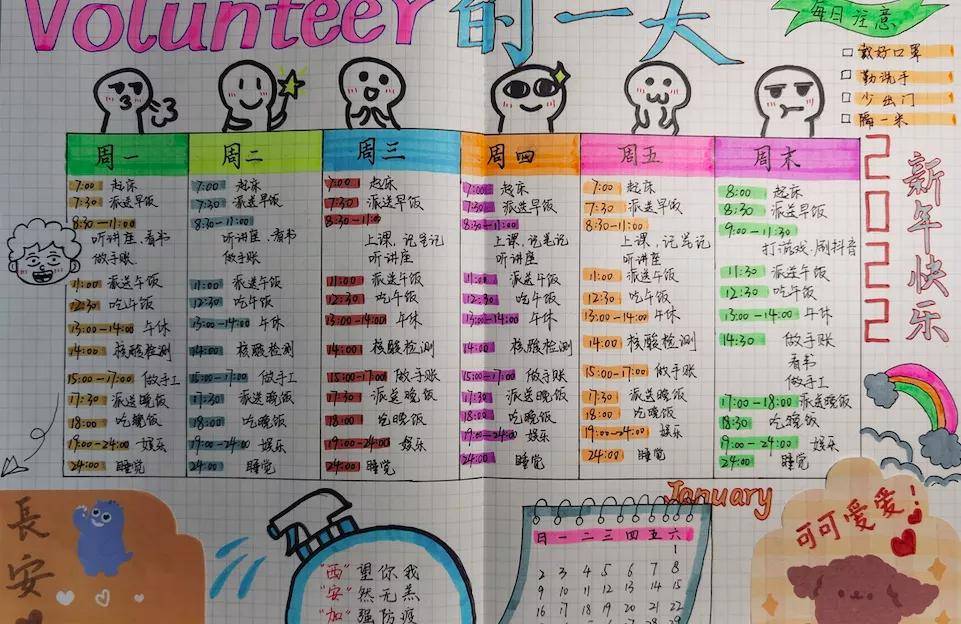 Volunteer的一天
每日注意
戴好口罩
勤洗手
少出门
隔一米
2022
新年快乐
周一
7:00 起床
7:30 派送早饭
8:30-11:00
听讲座、看书
做手账
11:00 派送午饭
12:30 吃午饭
13:00-14:00 午休
14:00 核酸检测
15:00-17:00 做手工
17:30 派送晚饭
18:00 吃晚饭
19:00-24:00 娱乐
24:00 睡觉
周二
7:00 起床
7:30 派送早饭
8:30-11:00
听讲座、看书
做手账
11:00 派送午饭
12:30 吃午饭
13:00-14:00 午休
14:00 核酸检测
15:00-17:00 做手工
17:30 派送晚饭
18:00 吃晚饭
19:00-24:00 娱乐
24:00 睡觉
周三
7:00 起床
7:30 派送早饭
8:30-11:00
上课、记笔记
听讲座
11:00 派送午饭
12:30 吃午饭
13:00-14:00 午休
14:00 核酸检测
15:00-17:00 做手账
17:30 派送晚饭
18:00 吃晚饭
19:00-24:00 娱乐
24:00 睡觉
周四
7:00 起床
7:30 派送早饭
8:30-11:00
上课、记笔记
听讲座
11:00 派送午饭
12:30 吃午饭
13:00-14:00 午休
14:00 核酸检测
15:00-17:00 做手账
17:30 派送晚饭
18:00 吃晚饭
19:00-24:00 娱乐
24:00 睡觉
周五
7:00 起床
7:30 派送早饭
8:30-11:00
上课、记笔记
听讲座
11:00 派送午饭
12:30 吃午饭
13:00-14:00 午休
14:00 核酸检测
15:00-17:00 做手账
17:30 派送晚饭
18:00 吃晚饭
19:00-24:00 娱乐
24:00 睡觉
周末
8:00 起床
8:30 派送早饭
9:00-11:30
打游戏、刷抖音
11:30 派送午饭
12:30 吃午饭
13:00-14:00 午休
14:30 做手账
看书
做手工
17:00-18:00 派送晚饭
18:30 吃晚饭
19:00-24:00 娱乐
24:00 睡觉
長安
"西"望你我
"安"然无恙
"加"强防疫
January
日 一 二 三 四 五 六
1
2 3 4 5 6 7 8
9 10 11 12 13 14 15
16 17 18 19 20 21 22
可可爱爱！